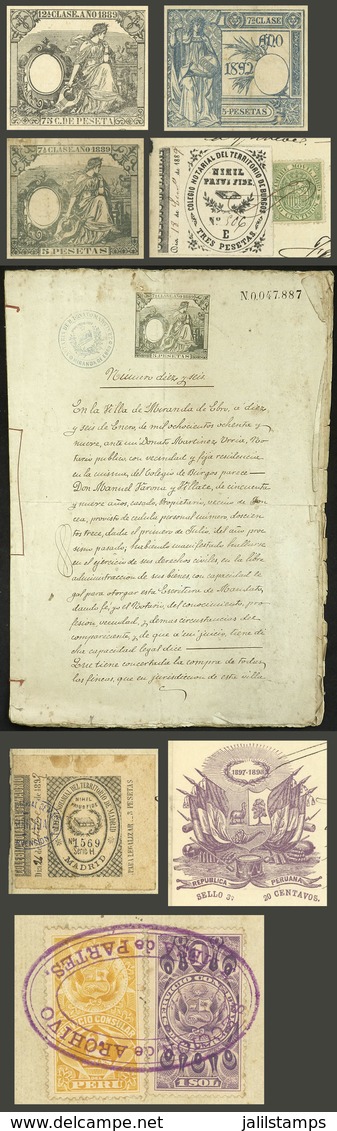 12ª CLASE. AÑO 1889
75 C. DE PESETA
7ª CLASE
AÑO
1892
5 PESETAS
7ª CLASE. AÑO 1889
5 PESETAS
COLEGIO NOTARIAL DEL TERRITORIO DE BURGOS
NIHIL
PRIUS FIDE
Nº 506
E
TRES PESETAS
N.0.047.887
5 PESETAS
Número diez y seis
En la Villa de Miranda de Ebro, á diez
y seis de Enero, de mil ochocientos ochenta y
nueve, ante mi Donato Martinez Orria, No-
tario publico con vecindad y fija residencia
en la misma, del Colegio de Búrgos parece
Don Manuel Varona y Villate, de cincuenta
y nueve años, casado, Propietario, vecino de
provisto de cedula personal número doscien
tos trece, dada el primero de Julio, del año pro-
simo pasado, habiendo manifestado hallarse
en el ejercicio de sus derechos civiles, en la libre
administraccion de sus bienes, con capacidad le
gal para otorgar esta Escritura de Mandato,
dando fé, yo el Notario, del conocimiento, pro-
fesion, vecindad, y demas circunstancias del
compareciente, y de que a mi juicio, tiene
capacidad legal dice
Que tiene concertada la compra de todas
las fincas, que en jurisdiccion de esta villa
COLEGIO NOTARIAL DEL TERRITORIO DE MADRID
NIHIL
PRIUS FIDE
Nº 1569
Serie H
MADRID
PARA LEGALIZAR 3 PESETAS
1897-1898
REPUBLICA PERUANA
SELLO 3º 20 CENTAVOS.
MESA de PARTES.
SECCION de ARCHIVO
SERVICIO CONSULAR
PERU
SERVICIO CONSULAR
1 SOL
www.delcampe.net
jalilstamps